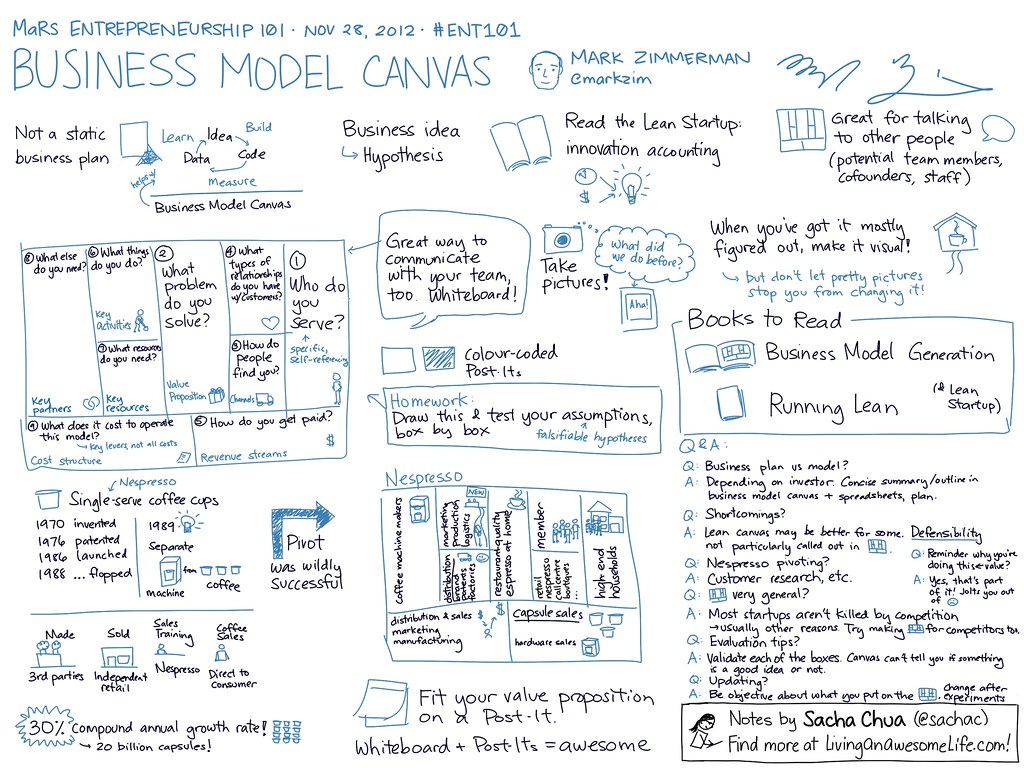 MaRS ENTREPRENEURSHIP 101 · NOV 28, 2012 · #ENT101
BUSINESS MODEL CANVAS
MARK ZIMMERMAN
@markzim
Not a static
business plan
Learn
Idea
Build
Data
Code
Measure
helps
Business Model Canvas
Business idea
↳ Hypothesis
Read the Lean Startup:
innovation accounting
$
Great for talking
to other people
(potential team members,
cofounders, staff)
⑧ What else
do you need?
Key
partners
⑥ What things
do you do?
Key
Activities
⑦ What resources
do you need?
Key
resources
②
What
problem
do you
solve?
Value
Proposition
④ What
types of
relationships
do you have
w/customers?
③ How do
people
find you?
Channels
①
Who do
you
serve?
specific,
self-referencing
⑨ What does it cost to operate
this model?
↳ Key levers, not all costs
Cost structure
⑤ How do you get paid?
$
Revenue streams
Great way to
communicate
with your team,
too. Whiteboard!
Take
pictures!
What did
we do before?
Aha!
When you've got it mostly
figured out, make it visual!
↳ but don't let pretty pictures
stop you from changing it!
Colour-coded
Post-Its
Homework:
Draw this & test your assumptions,
box by box
falsifiable hypotheses
Books to Read
Business Model Generation
Running Lean
(& Lean
Startup)
Nespresso
Single-serve coffee cups
1970 invented
1976 patented
1986 launched
1988 ...flopped
1989
Separate
machine
from
coffee
Pivot
was wildly
successful
Made
3rd parties
Sold
Independent
retail
Sales
Training
Nespresso
Coffee
Sales
Direct to
consumer
30% Compound annual growth rate!
↳ 20 billion capsules!
Nespresso
coffee machine makers
NEW
marketing
production
logistics
distribution
brand
patents
factories
restaurant-quality
espresso at home
member
retail
nespresso
call centre
boutiques
...
high end
households
distribution & sales
marketing
manufacturing
capsule sales
hardware sales
Fit your value proposition
on a Post-It.
Whiteboard + Post-Its = awesome
Q&A:
Q: Business plan vs model?
A: Depending on investor. Concise summary/outline in
business model canvas + spreadsheets, plan.
Q: Shortcomings?
A: Lean canvas may be better for some. Defensibility
not particularly called out in
Q: Nespresso pivoting?
A: Customer research, etc.
Q: very general?
A: Most startups aren't killed by competition
→ usually other reasons. Try making for competitors too.
Q: Evaluation tips?
A: Validate each of the boxes. Canvas can't tell you if something
is a good idea or not.
Q: Updating?
A: Be objective about what you put on the change after
experiments
Q: Reminder why you're
doing this → value?
A: Yes, that's part
of it! Jolts you out
of
Notes by Sacha Chua (@sachac)
Find more at LivingAnAwesomeLife.com!